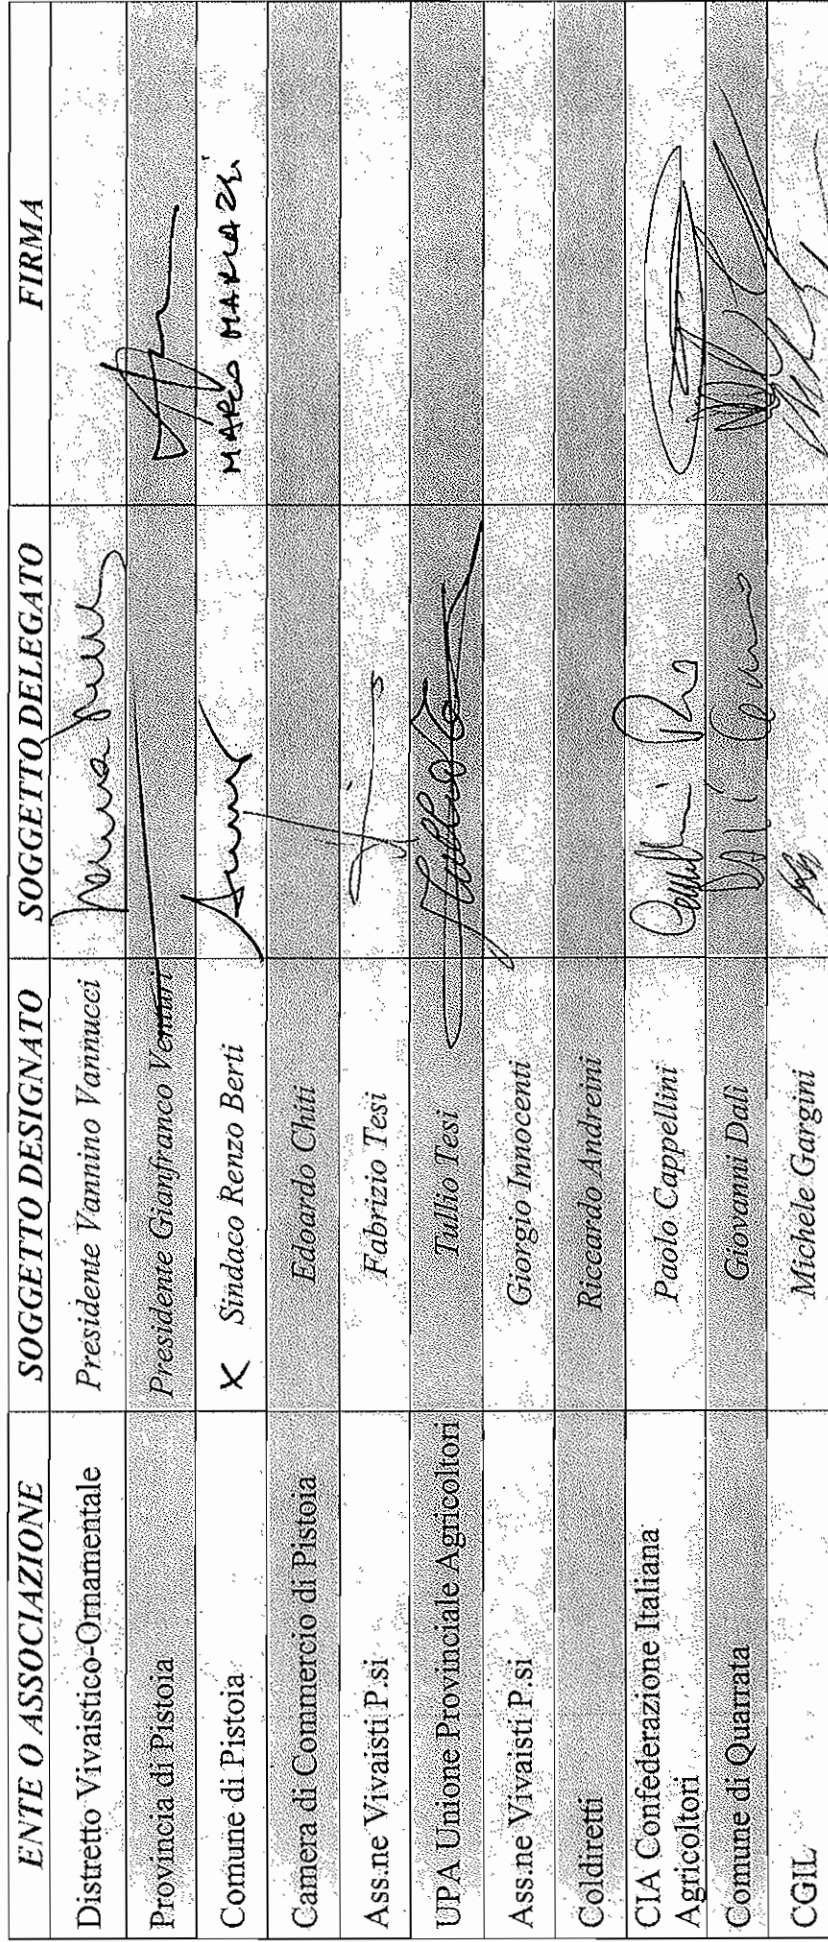 ENTE O ASSOCIAZIONE SOGGETTO DESIGNATO SOGGETTO DELEGATO FIRMA
Distretto Vivaistico-Ornamentale Presidente Vannino Vannucci
Provincia di Pistoia Presidente Gianfranco Venturi
Comune di Pistoia X Sindaco Renzo Berti MARCO MARIAZZI
Camera di Commercio di Pistoia Edoardo Chiti
Ass.ne Vivaisti P.si Fabrizio Tesi
UPA Unione Provinciale Agricoltori Tullio Tesi
Ass.ne Vivaisti P.si Giorgio Innocenti
Coldiretti Riccardo Andreini
CIA Confederazione Italiana
Agricoltori Paolo Cappellini
Comune di Quarrata Giovanni Dalì
CGIL Michele Gargini